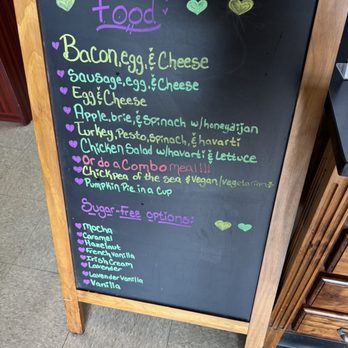 Food
Bacon, egg, & Cheese
Sausage, egg, & Cheese
Egg & Cheese
Apple, brie, & spinach w/ honeydijon
Turkey, Pesto, spinach, & havarti
Chicken Salad w/ havarti & Lettuce
Or do a Combo meal!!!
Chickpea of the sea & vegan/vegetarian
Pumpkin Pie in a Cup
Sugar-Free options:
Mocha
Caramel
Hazelnut
French vanilla
Irish Cream
Lavender
Lavender Vanilla
Vanilla